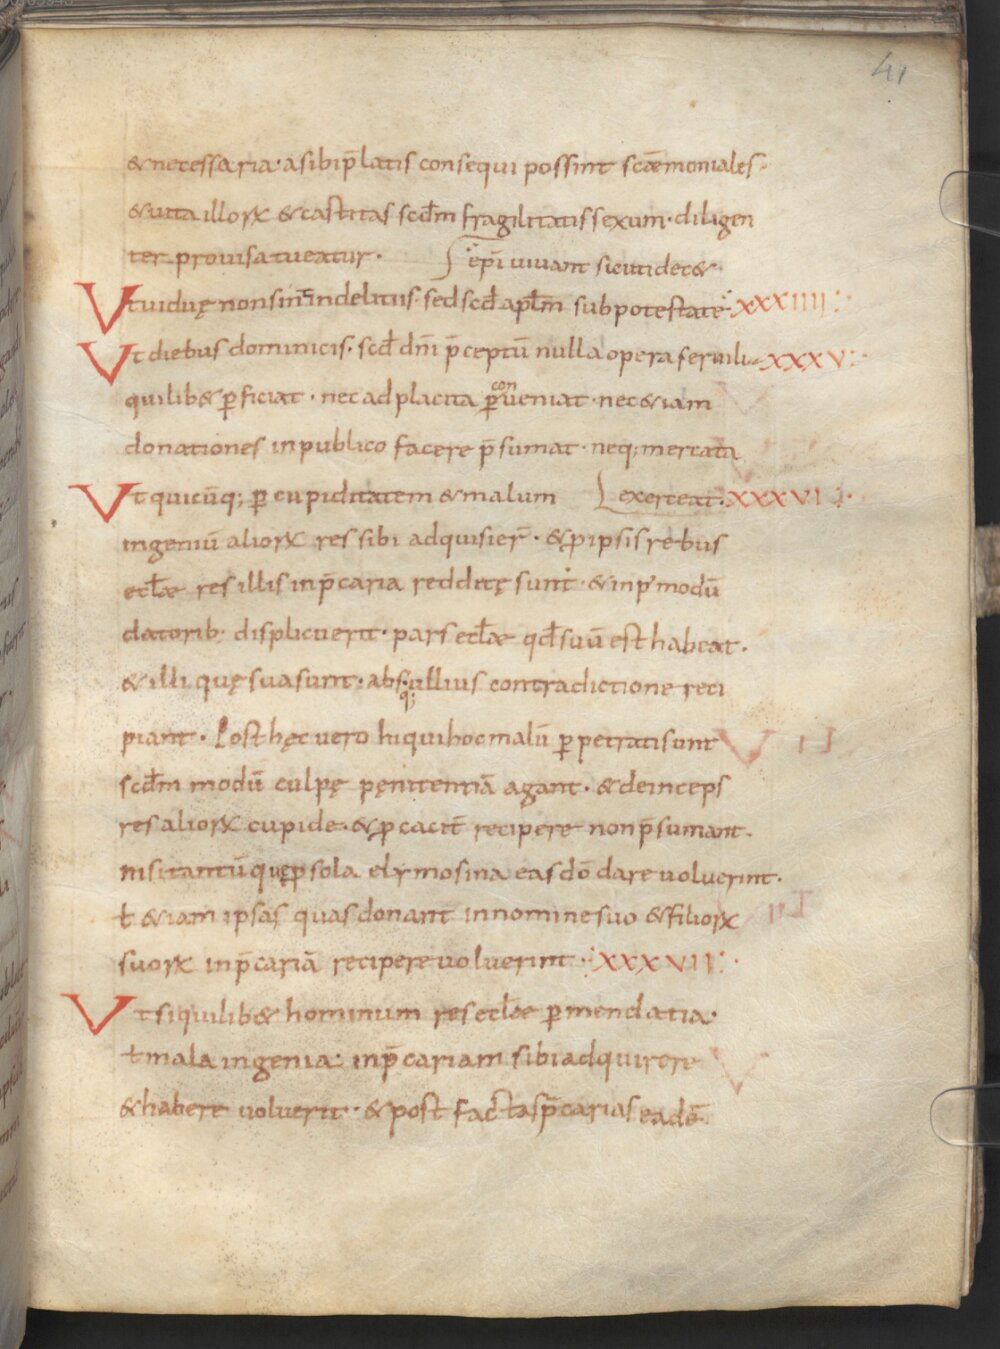 41
& necessaria· a sibi p̄latis consequi possint sc̄æmoniales·
& uita illorꝝ & castitas scd̄m fragilitatis sexum· diligen
ter prouisa tueatur· ep̄i uiuant sicuti dec&·
Vt uiduę non sint indelitus· sed scd̄ apl̄m sub potestate XXXIIII
Vt diebus dominicis· scd̄ dn̄i p̄ceptū nulla opera seruilia XXXV
quilib& ꝑficiat· nec ad placita ꝑconueniat· nec &iam
donationes in publico facere p̄sumat· neq; mercata
Vt quicūq; ꝑ cupiditatem & malum exerceat· XXXVI
ingeniū aliorꝝ res sibi adquisier̄· & ꝑ ipsis rebus
eccl̄æ res illis in p̄caria redditę sunt· & in p' modū
datorib; displicuerit· pars eccl̄æ qd̄ suū est habeat·
& illi quę sua sunt· absq; ullius contradictione reci
piant· Post hęc uero hi qui hoc malū ꝑpetrati sunt
scd̄m modū culpę pęnitentiā agant· & deinceps
res aliorꝝ cupide· & ꝓcacit̄ recipere non p̄sumant·
nisi tantū quę ꝓ sola elymosina eas dō dare uoluerint·
ł &iam ipsas quas donant in nomine suo & filiorꝝ
suorꝝ in p̄cariā recipere uoluerint· XXXVII
Vt si quilib& hominum res eccl̄æ ꝑ mendatia·
ł mala ingenia· in p̄cariam sibi adquirere
& habere uoluerit· & post factas p̄carias eadē